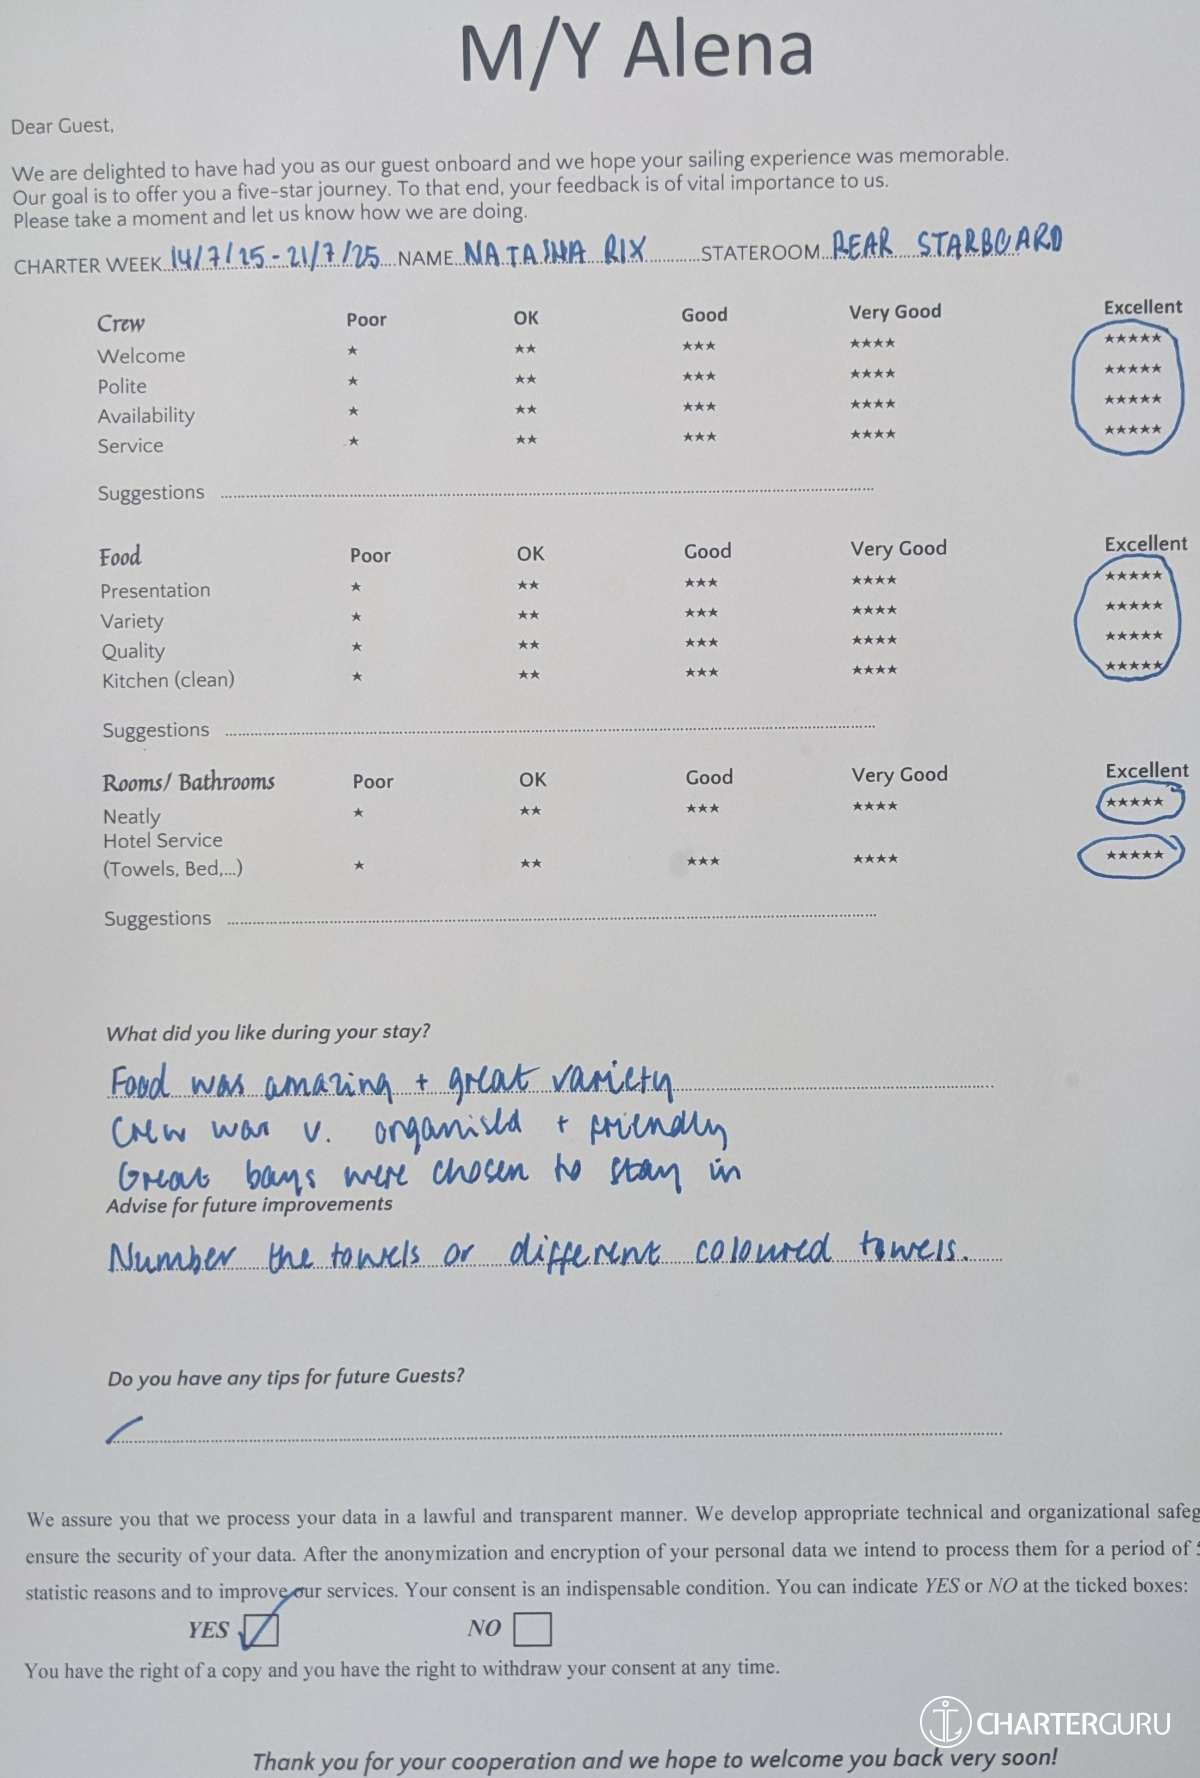 M/Y Alena
Dear Guest,
We are delighted to have had you as our guest onboard and we hope your sailing experience was memorable.
Our goal is to offer you a five-star journey. To that end, your feedback is of vital importance to us.
Please take a moment and let us know how we are doing.
CHARTER WEEK 14/7/25 - 21/7/25 NAME NATASHA RIX STATEROOM REAR STARBOARD
Crew Poor OK Good Very Good Excellent
Welcome ★ ★★ ★★★ ★★★★ ★★★★★
Polite ★ ★★ ★★★ ★★★★ ★★★★★
Availability ★ ★★ ★★★ ★★★★ ★★★★★
Service ★ ★★ ★★★ ★★★★ ★★★★★
Suggestions
Food Poor OK Good Very Good Excellent
Presentation ★ ★★ ★★★ ★★★★ ★★★★★
Variety ★ ★★ ★★★ ★★★★ ★★★★★
Quality ★ ★★ ★★★ ★★★★ ★★★★★
Kitchen (clean) ★ ★★ ★★★ ★★★★ ★★★★★
Suggestions
Rooms/ Bathrooms Poor OK Good Very Good Excellent
Neatly ★ ★★ ★★★ ★★★★ ★★★★★
Hotel Service
(Towels, Bed,...) ★ ★★ ★★★ ★★★★ ★★★★★
Suggestions
What did you like during your stay?
Food was amazing + great variety
Crew was v. organised + friendly
Great bays were chosen to stay in
Advise for future improvements
Number the towels or different coloured towels.
Do you have any tips for future Guests?
We assure you that we process your data in a lawful and transparent manner. We develop appropriate technical and organizational
ensure the security of your data. After the anonymization and encryption of your personal data we intend to process them for a period of
statistic reasons and to improve our services. Your consent is an indispensable condition. You can indicate YES or NO at the ticked boxes:
YES NO
You have the right of a copy and you have the right to withdraw your consent at any time.
CHARTERGURU
Thank you for your cooperation and we hope to welcome you back very soon!